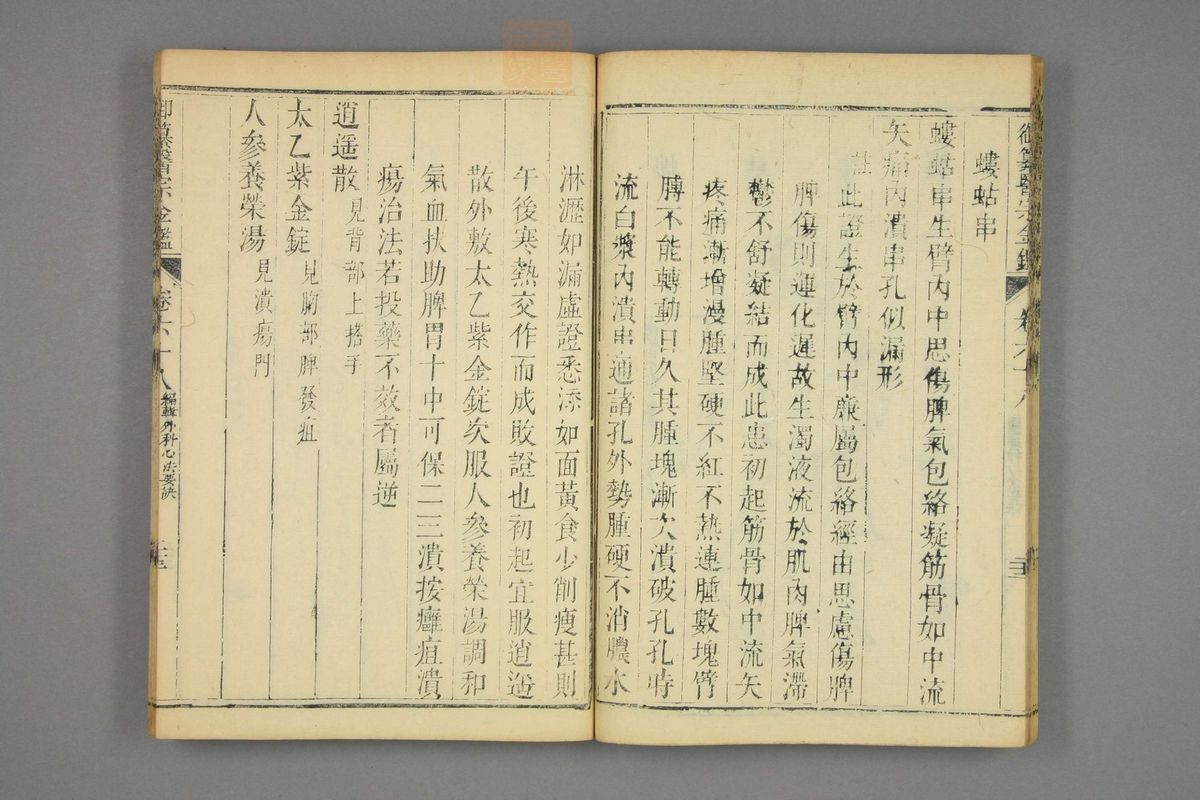 螻蛄串
螻蛄串生臂內中思傷脾氣包絡凝筋骨如中流
矢痛內潰串孔似漏形
註此證生於臂內中廉屬包絡經由思慮傷脾
脾傷則運化遲故生濁液流於肌肉脾氣滯
鬱不舒凝結而成此患初起筋骨如中流矢
疼痛漸增漫腫堅硬不紅不熱連腫數塊臂
膊不能轉動日久其腫塊漸次潰破孔孔時
流白漿內潰串通諸孔外勢腫硬不消膿水
淋瀝如漏虛證悉添如面黃食少削瘦甚則
午後寒熱交作而成敗證也初起宜服逍遙
散外敷太乙紫金錠次服人參養榮湯調和
氣血扶助脾胃十中可保二三潰按癰疽潰
瘍治法若投藥不效者屬逆
逍遥散 見背部上搭手
太乙紫金錠 見胸部脾發疽
人參養榮湯 見潰瘍門
御纂醫宗金鑑 卷六十八 編輯外科心法要訣